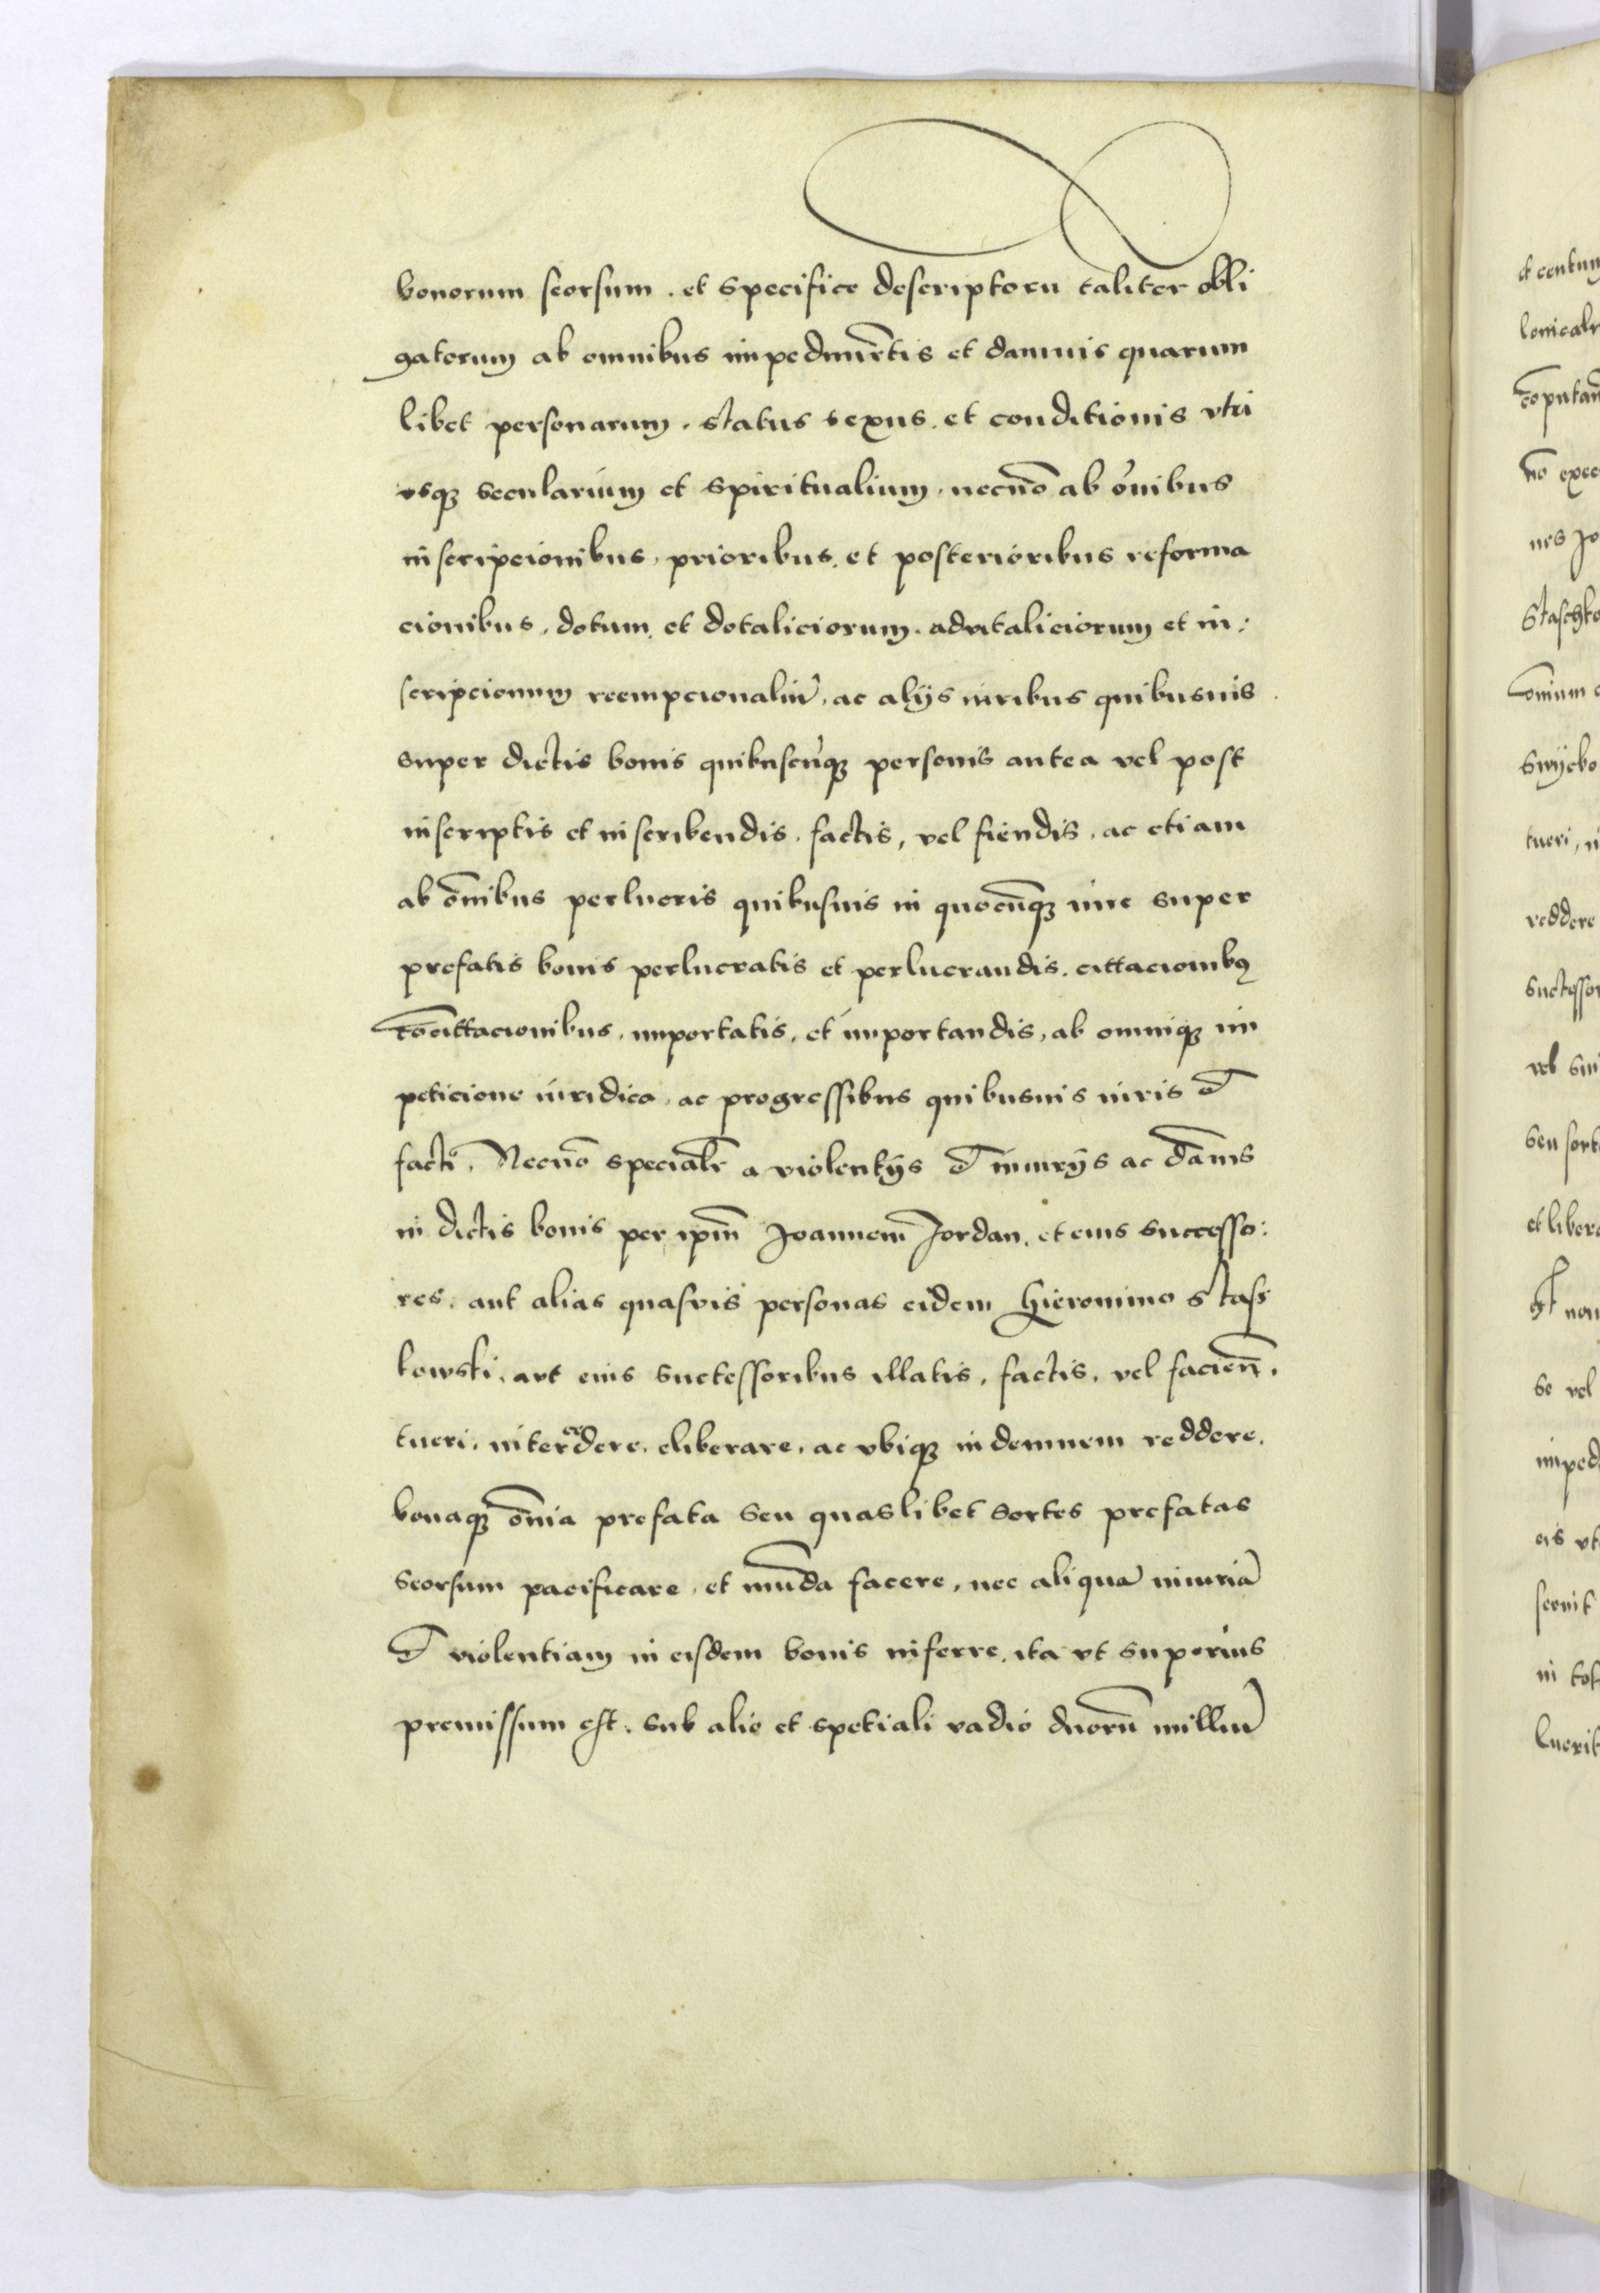 bonorum seorsum . et specifice descriptoru taliter obli
gatorum ab omnibus impedimētis et damnis quarum
libet personarum . status sexus . et conditionis vtri
vsqꝫ secularium et spiritualium . necnō ab oībus
inscripcionibus . prioribus . et posterioribus reforma
cionibus . dotum . et dotaliciorum . advitaliciorum et in :
scripcionum reempcionaliū . ac alijs iuribus quibusuis
super dictis bonis quibuscūqꝫ personis antea vel post
inscriptis et inscribendis . factis , vel fiendis . ac etiam
ab ōnibus perlucris quibusuis in quocūqꝫ iure super
prefatis bonis perlucratis et perlucrandis . cittacionibꝰ
cōcittacionibus . importatis . et importandis , ab omniqꝫ im
peticione iuridica . ac progressibus quibusuis iuris et
facti . Necnō specialr̄ a violentijs et iniurijs ac dānis
in dictis bonis per ipm̄ Joannem̄ Jordan . et eius successo :
res . aut alias quasvis personas eidem Hieronimo Stass
kowski . aut eius successoribus illatis , factis . vel facien̄ .
tueri . intercedere . eliberare . ac vbiqꝫ indemnem reddere .
bonaqꝫ ōnia prefata seu quaslibet sortes prefatas
seorsum pacificare . et mūda facere , nec aliquā iniuriā
et violentiam in eisdem bonis inferre . ita vt superius
premissum est . sub alio et spetiali vadio duorū milliū